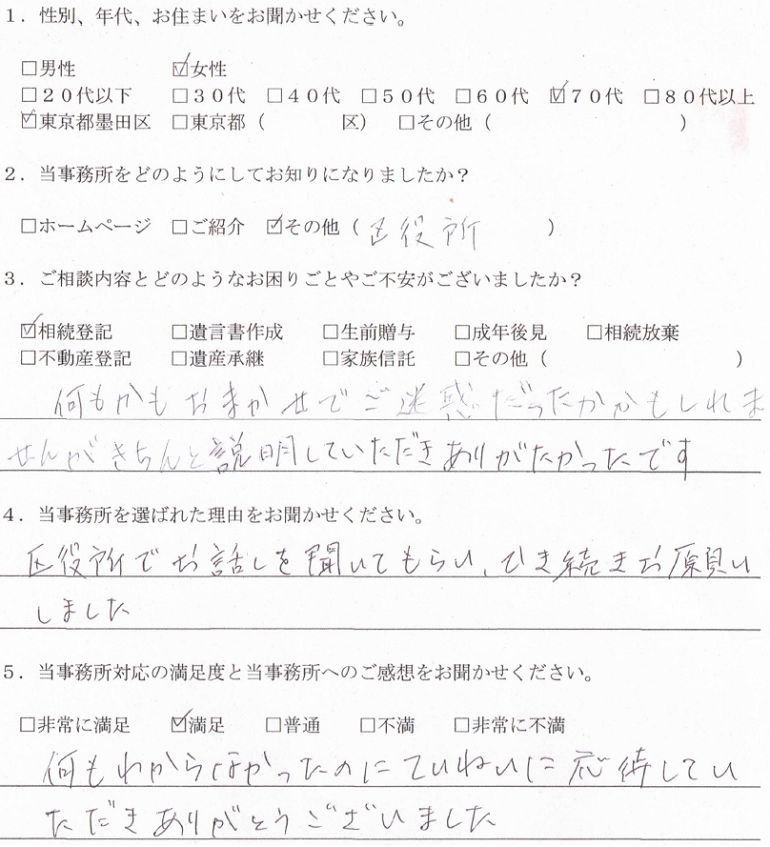 1．性別、年代、お住まいをお聞かせください。
□男性　☑女性
□２０代以下　□３０代　□４０代　□５０代　□６０代　☑７０代　□８０代以上
☑東京都墨田区　□東京都（　　　区）　□その他（　　　　　　　）
2．当事務所をどのようにしてお知りになりましたか？
□ホームページ　□ご紹介　☑その他（区役所　　　）
3．ご相談内容とどのようなお困りごとやご不安がございましたか？
☑相続登記　□遺言書作成　□生前贈与　□成年後見　□相続放棄
□不動産登記　□遺産承継　□家族信託　□その他（　　　　　　　）
何もかもおまかせでご迷惑だったかかもしれま
せんがきちんと説明していただきありがたかったです
4．当事務所を選ばれた理由をお聞かせください。
区役所でお話しを聞いてもらい、ひき続きお願い
しました
5．当事務所対応の満足度と当事務所へのご感想をお聞かせください。
□非常に満足　☑満足　□普通　□不満　□非常に不満
何もわからなかったのにていねいに応待してい
ただきありがとうございました